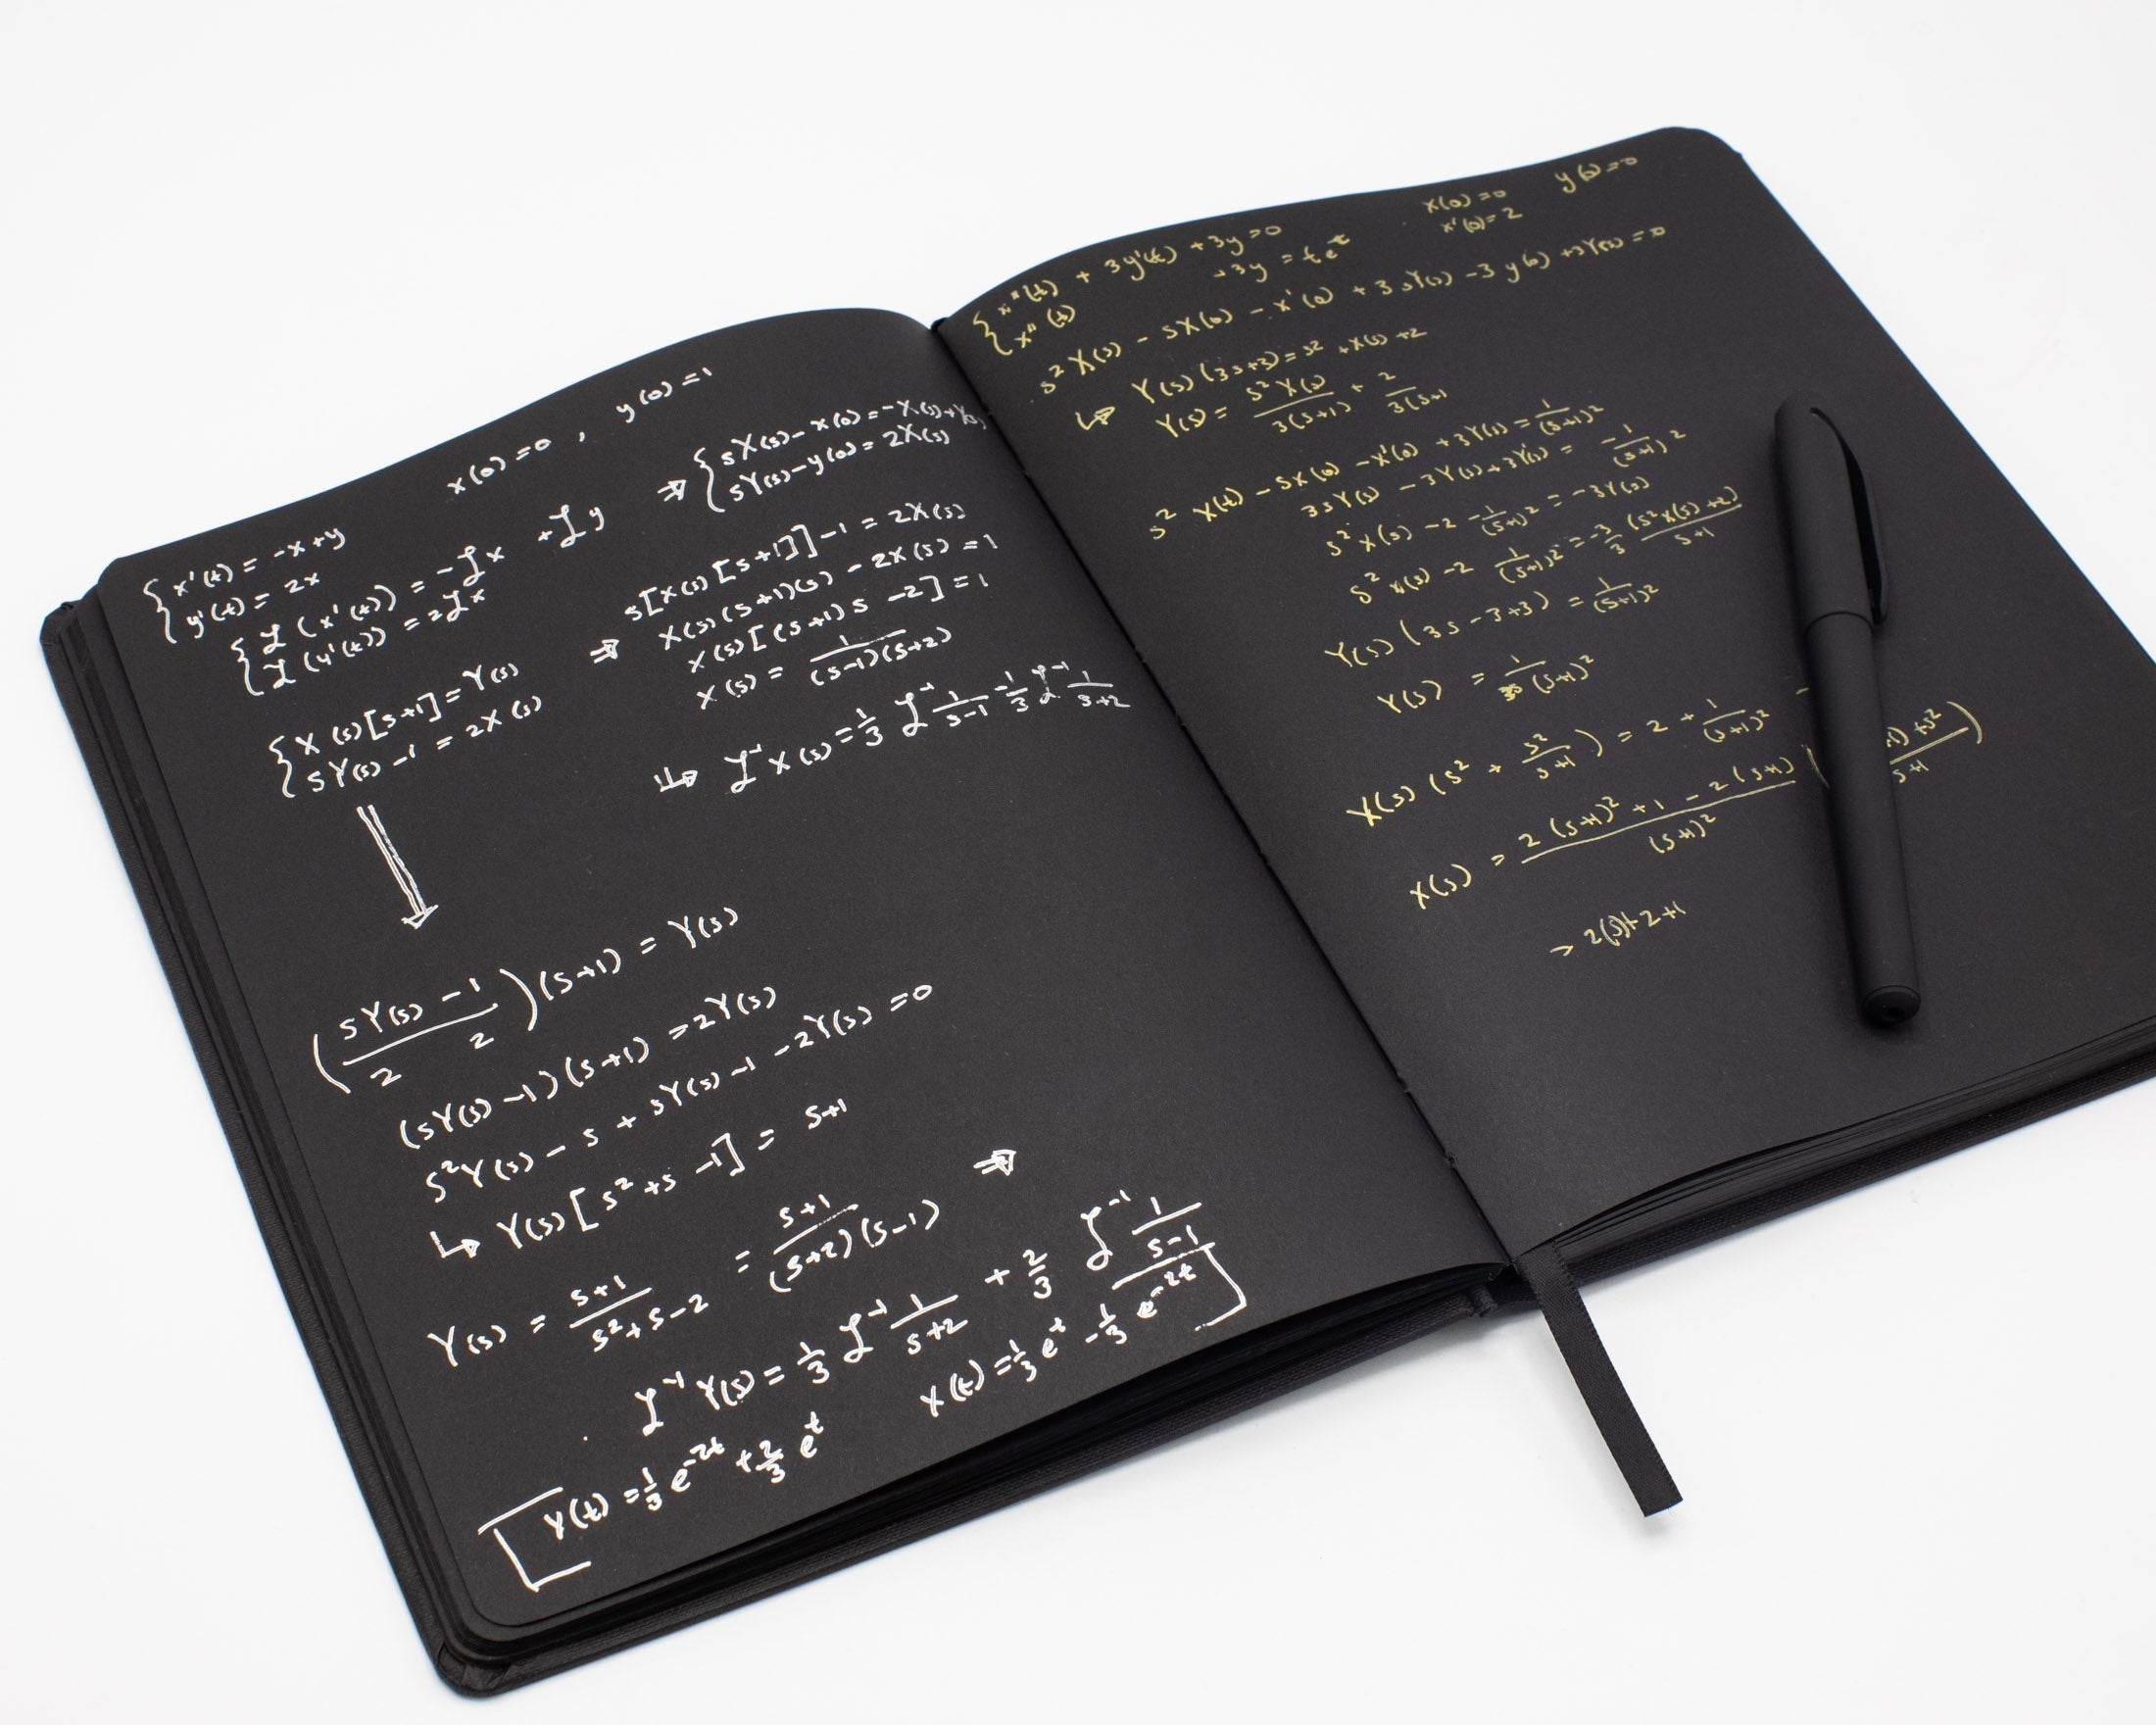 x(0) = 0 , y(0) = 1
{ x'(t) = -x+y
y'(t) = 2x
{ ℒ(x'(t)) = -ℒx +ℒy
ℒ(y'(t)) = 2ℒx
⇒ { sX(s) - x(0) = -X(s)+Y(s)
sY(s) - y(0) = 2X(s)
{ X(s)[s+1] = Y(s)
sY(s) - 1 = 2X(s)
⇒ s[X(s)[s+1]] - 1 = 2X(s)
X(s)(s+1)(s) - 2X(s) = 1
X(s)[(s+1)s - 2] = 1
X(s) = 1/((s-1)(s+2))
↳ ℒ⁻¹ X(s) = 1/3 ℒ⁻¹ 1/(s-1) - 1/3 ℒ⁻¹ 1/(s+2)
((sY(s) - 1)/(2 2))(s+1) = Y(s)
(sY(s) - 1)(s+1) = 2Y(s)
s²Y(s) - s + sY(s) - 1 - 2Y(s) = 0
↳ Y(s)[s² + s - 1] = s+1
Y(s) = (s+1)/(s²+s-2) = (s+1)/((s+2)(s-1)) ⇒
ℒ⁻¹ Y(s) = 1/3 ℒ⁻¹ 1/(s+2) + 2/3 ℒ⁻¹ 1/(s-1)
Y(t) = 1/3 e^(-2t) + 2/3 e^t X(t) = 1/3 e^t - 1/3 e^(-2t)
x(0) = 0 y(0) = 0
x'(0) = 2
{ x''(t) + 3y'(t) + 3y = 0
x''(t) +3y = te^t
s² X(s) - sX(0) - x'(0) + 3sY(s) - 3y(0) + 3Y(s) = 0
↳ Y(s)(3s+3) = s² + X(s) + 2
Y(s) = s²X(s)/(3(s+1)) + 2/(3(s+1
s² X(t) - sX(0) - x'(0) + 3Y(s) = 1/(s+1)²
3sY(s) - 3Y(s) + 3Y(s) = -1/(s+1)²
s² X(s) - 2 - 1/(s+1)² = -3Y(s)
s² X(s) - 2 1/(s+1)² = -3/3 (s²X(s)+2)/(s+1)
Y(s)(3s-3+3) = 1/(s+1)²
Y(s) = 1/(3s(s+1)²
X(s)(s² + s²/(s+1)) = 2 + 1/(s+1)² -
X(s) = (2(s+1)² + 1 - 2(s+1))/(s+1)² ( +1) + s²)/(s+1)
→ 2(s)+2+1